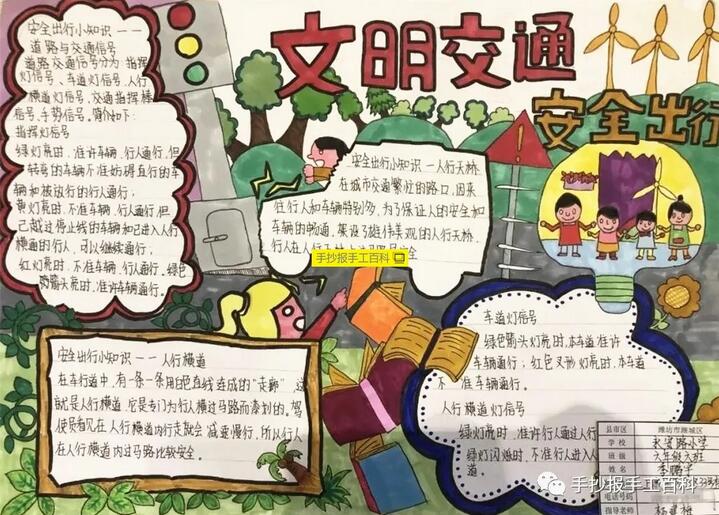 文明交通
安全出行
安全出行小知识——
道路与交通信号
道路交通信号分为：指挥
灯信号、车道灯信号、人行
横道灯信号、交通指挥棒
信号、手势信号，简介如下：
指挥灯信号
绿灯亮时，准许车辆、行人通行，但
转弯的车辆不准妨碍直行的车
辆和被放行的行人通行；
黄灯亮时，不准车辆、行人通行，但
已越过停止线的车辆和已进入人行
横道的行人，可以继续通行；
红灯亮时，不准车辆、行人通行。绿色
箭头亮时，准许车辆通行。
安全出行小知识——人行天桥
在城市交通繁忙的路口，因来
往行人和车辆特别多，为了保证人的安全和
车辆的畅通，架设了雄伟美观的人行天桥，
手抄报手工百科
安全出行小知识——人行横道
在车行道中，有一条一条用白色直线连成的“走廊”，这
就是人行横道，它是专门为行人横过马路而漆划的。驾
驶员看见在人行横道内行走就会减速慢行，所以行人
在人行横道内过马路比较安全。
车道灯信号
绿色箭头灯亮时，本车道准许
车辆通行；红色叉形灯亮时，本车道
不准车辆通行。
人行横道灯信号
绿灯亮时，准许行人通过人行
绿灯闪烁时，不准行人进入人
道。
县市区 潍坊市潍城区
学校
班级 六年级六班
姓名
电话号码
指导老师
手抄报手工百科